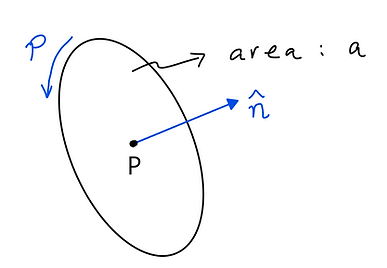 P
area : a
n̂
P